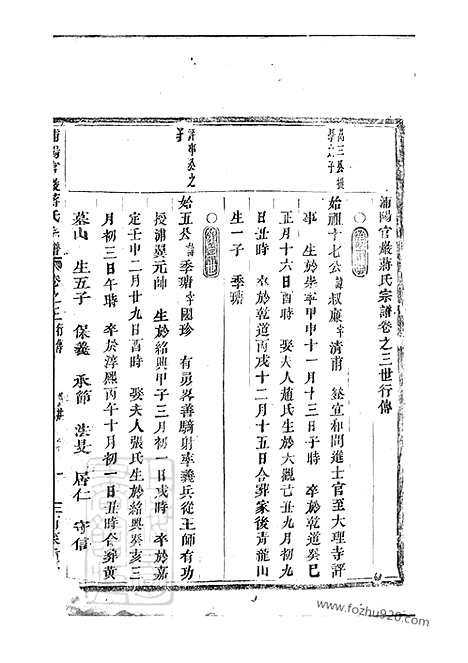 浦陽官巖蔣氏宗譜卷之三世行傳
始祖十七公諱叔廉字清甫 登宣和間進士官至大理寺評
事 生於崇寧甲申十一月十三日子時 卒於乾道癸巳
正月十六日酉時 娶夫人趙氏生於大觀己丑九月初九
日丑時 卒於乾道丙戌十二月十五日合葬家後青龍山
生一子 季瑭
評事公之子
始五公諱季瑭字國珍 有勇畧善騎射率義兵從王師有功
授浦翼元帥 生於紹興甲子三月初一日戌時 卒於嘉
定壬申二月廿九日酉時 娶夫人張氏生於紹興癸亥三
月初三日午時 卒於淳熙丙午十月初一日丑時合葬黃
墓山 生五子 保義 承節 法旻 居仁 守信
浦陽官巖蔣氏宗譜 卷之三 行傳
www.fozhu920.com